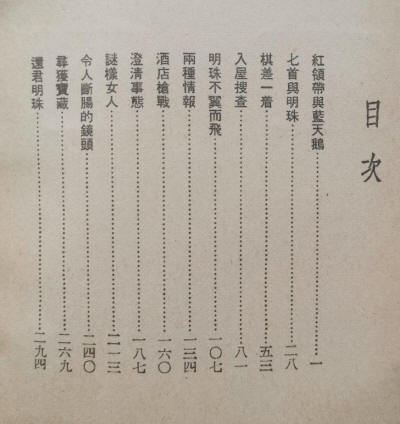 目次
紅領帶與藍天鵝⋯⋯一
七首與明珠⋯⋯二八
棋差一着⋯⋯五三
入屋搜查⋯⋯八一
明珠不翼而飛⋯⋯一〇七
兩種情報⋯⋯一三四
酒店槍戰⋯⋯一六〇
澄清事態⋯⋯一八七
謎樣女人⋯⋯二一三
令人斷腸的鏡頭⋯⋯二四〇
尋獲寶藏⋯⋯二六九
還君明珠⋯⋯二九四